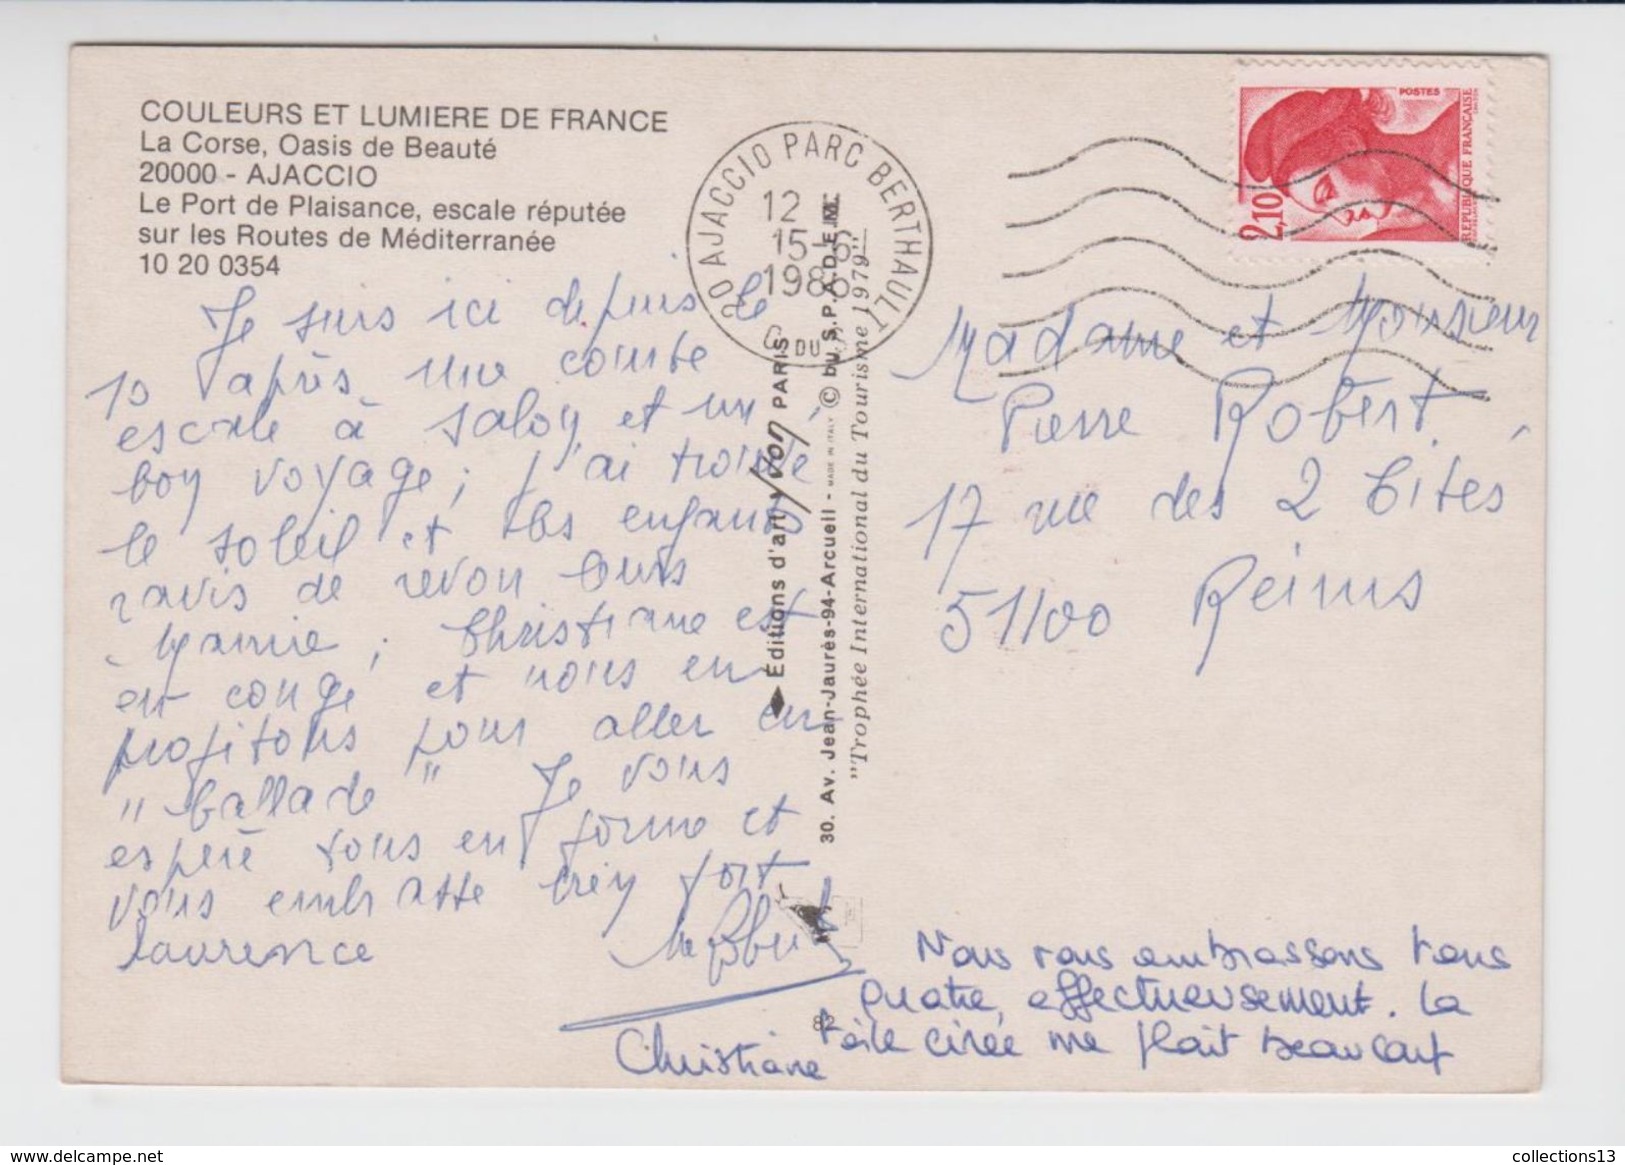 COULEURS ET LUMIERE DE FRANCE
La Corse, Oasis de Beauté
20000 - AJACCIO
Le Port de Plaisance, escale réputée
sur les Routes de Méditerranée
10 20 0354
Je suis ici depuis le
10 après une courte
escale à Salon et un
bon voyage; j'ai trouvé
le soleil et les enfants
ravis de revoir leurs
Mamie; Christiane est
en congé et nous en
profitons pour aller en
"ballade" Je vous
espère tous en forme et
vous embrasse bien fort
Laurence
Christiane
20 AJACCIO PARC BERTHAULT
12 H
15-5
1986
C. DU S.
POSTES
2,10
REPUBLIQUE FRANÇAISE
Editions d'art Yvon PARIS
30. Av. Jean-Jaurès-94-Arcueil - MADE IN ITALY © by S.P.A.D.E.M.
"Trophée International du Tourisme 1979"
82
Madame et Monsieur
Pierre Robert
17 rue des 2 Cités
51100 Reims
Nous vous embrassons tous
quatre, affectueusement. La
toile cirée me plait beaucoup
collections13